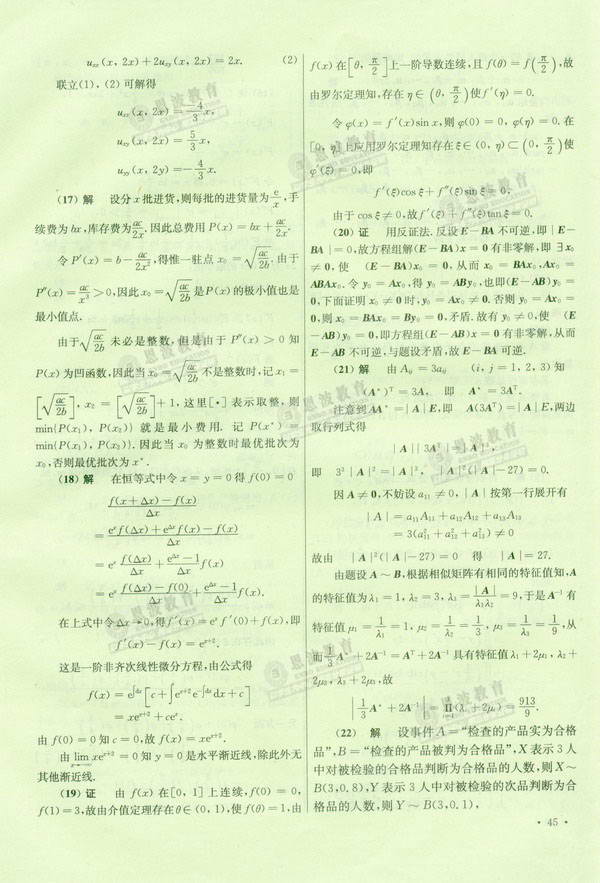 u_xx(x, 2x)+2u_xy(x, 2x)=2x. (2)
联立(1), (2)可解得
u_xx(x, 2x)=-4/3 x,
u_xy(x, 2x)=5/3 x,
u_yy(x, 2y)=-4/3 x.
(17) 解 设分 x 批进货,则每批的进货量为 e/x,手
续费为 bx,库存费为 ac/2x. 因此总费用 P(x)=bx+ac/2x.
令 P′(x)=b-ac/2x²,得惟一驻点 x₀=√(ac/2b). 由于
P″(x)=ac/x³>0,因此 x₀=√(ac/2b)是 P(x)的极小值也是
最小值点.
由于√(ac/2b) 未必是整数,但是由于 P″(x)>0 知
P(x)为凹函数,因此当 x₀=√(ac/2b)不是整数时,记 x₁=
[√(ac/2b)], x₂=[√(ac/2b)]+1, 这里[•]表示取整,则
min{P(x₁), P(x₂)} 就是最小费用. 记 P(x*)=
min{P(x₁), P(x₂)}. 因此当 x₀ 为整数时最优批次为
x₀,否则最优批次为 x*.
(18) 解 在恒等式中令 x=y=0 得 f(0)=0
(f(x+Δx)-f(x))/Δx
=(e^x f(Δx)+e^Δx f(x)-f(x))/Δx
=e^x f(Δx)/Δx+(e^Δx-1)/Δx f(x)
=e^x (f(Δx)-f(0))/Δx+(e^Δx-1)/Δx f(x).
在上式中令Δx→0,得 f′(x)=e^x f′(0)+f(x),即
f′(x)-f(x)=e^(x+2).
这是一阶非齐次线性微分方程,由公式得
f(x)=e^(∫dx)[c+∫e^(x+2)e^(-∫dx)dx+c]
=xe^(x+2)+ce^x.
由 f(0)=0 知 c=0,故 f(x)=xe^(x+2).
由 lim(x→-∞) xe^(x+2)=0 知 y=0 是水平渐近线,除此外无
其他渐近线.
(19) 证 由 f(x)在[0, 1]上连续, f(0)=0,
f(1)=3,故由介值定理存在 θ∈(0, 1),使 f(θ)=1,由
f(x)在[θ, π/2]上一阶导数连续,且 f(θ)=f(π/2),故
由罗尔定理知,存在 η∈(θ, π/2)使 f′(η)=0.
令 φ(x)=f′(x)sin x,则 φ(0)=0, φ(η)=0. 在
[0, η]上应用罗尔定理知存在 ξ∈(0, η)⊂(0, π/2)使
φ′(ξ)=0,即
f′(ξ)cos ξ+f″(ξ)sin ξ=0.
由于 cos ξ≠0,故 f′(ξ)+f″(ξ)tan ξ=0.
(20) 证 用反证法. 反设 E-BA 不可逆,即|E
-BA|=0,故方程组解(E-BA)x=0 有非零解,即∃x₀
≠0, 使 (E-BA)x₀=0, 从而 x₀=BAx₀, Ax₀=
ABAx₀. 令 y₀=Ax₀,得 y₀=ABy₀,也即(E-AB)y₀=
0,下面证明 x₀≠0 时, y₀=Ax₀≠0. 否则 y₀=Ax₀=
0,则 x₀=BAx₀=By₀=0. 矛盾. 故有 y₀≠0,使 (E
-AB)y₀=0,即方程组(E-AB)x=0 有非零解,从而
E-AB 不可逆. 与题设矛盾,故 E-BA 可逆.
(21) 解 由 A_ij=3a_ij (i, j=1, 2, 3) 知
(A*)^T=3A, 即 A*=3A^T.
注意到 AA*=|A|E,即 A(3A^T)=|A|E,两边
取行列式得
|A||3A^T|=|A|³,
即 3³|A|²=|A|³, 即 |A|²(|A|-27)=0.
因 A≠0,不妨设 a₁₁≠0, |A|按第一行展开有
|A|=a₁₁A₁₁+a₁₂A₁₂+a₁₃A₁₃
=3(a₁₁²+a₁₂²+a₁₃²)≠0
故由 |A|²(|A|-27)=0 得 |A|=27.
由题设 A~B,根据相似矩阵有相同的特征值知,A
的特征值为 λ₁=1, λ₂=3, λ₃=|A|/(λ₁λ₂)=9,于是 A⁻¹ 有
特征值 μ₁=1/λ₁=1, μ₂=1/λ₂=1/3, μ₃=1/λ₃=1/9, 从
而 1/3 A*+2A⁻¹=A^T+2A⁻¹ 具有特征值 λ₁+2μ₁, λ₂+
2μ₂, λ₃+2μ₃,故
|1/3 A*+2A⁻¹|=∏(λᵢ+2μᵢ)=913/9.
(22) 解 设事件 A=“检查的产品实为合格
品”, B=“检查的产品被判为合格品”, X 表示 3 人
中对被检验的合格品判断为合格品的人数,则 X~
B(3, 0.8), Y 表示 3 人中对被检验的次品判断为合
格品的人数,则 Y~B(3, 0.1),
• 45 •
恩波教育